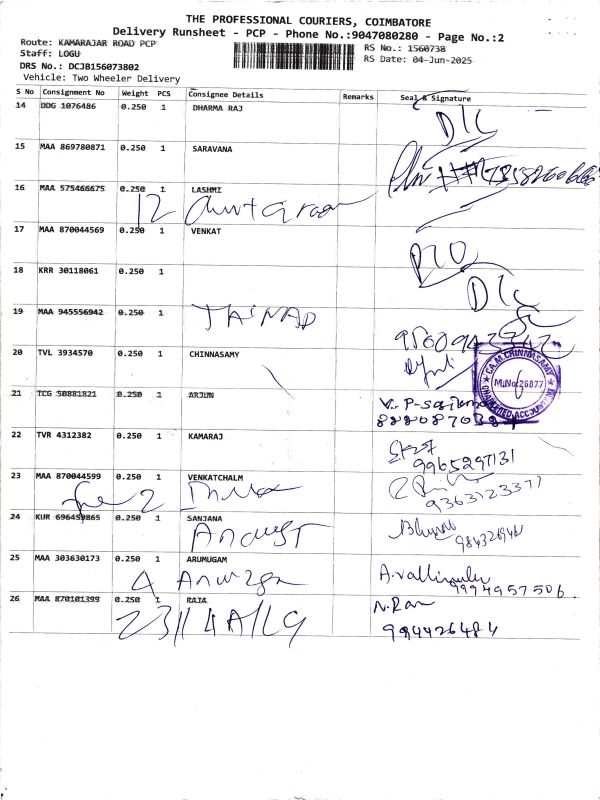 THE PROFESSIONAL COURIERS, COIMBATORE
Delivery Runsheet - PCP - Phone No.:9047080280 - Page No.:2
Route: KAMARAJAR ROAD PCP
Staff: LOGU
DRS No.: DCJB156073802
Vehicle: Two Wheeler Delivery
RS No.: 1560738
RS Date: 04-Jun-2025
S No Consignment No Weight PCS Consignee Details Remarks Seal & Signature
14 DDG 1076486 0.250 1 DHARMA RAJ D/C
15 MAA 869780871 0.250 1 SARAVANA
16 MAA 575466675 0.250 1 LASHMI
12
17 MAA 870044569 0.250 1 VENKAT
18 KRR 30118061 0.250 1 D/C
19 MAA 945556942 0.250 1
20 TVL 3934570 0.250 1 CHINNASAMY
CA.M.CHINNASAMY
M.No:26877
CHARTERED ACCOUNTANT
21 TCG 50881821 0.250 1 ARJUN
22 TVR 4312382 0.250 1 KAMARAJ
9965297131
23 MAA 870044599 0.250 1 VENKATCHALM
9363123371
24 KUR 696459865 0.250 1 SANJANA
25 MAA 303630173 0.250 1 ARUMUGAM
4
A.vallinayaki
9994957506
26 MAA 870101399 0.250 1 RAJA
23/14A/19
N.Ram
994426484